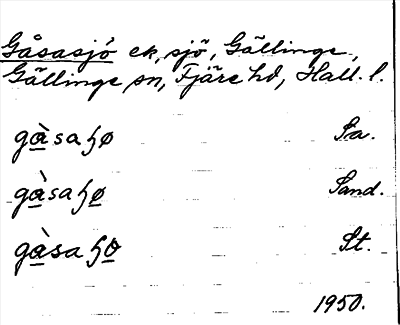 Gåsasjö ek, sjö, Gällinge,
Gällinge sn, Fjäre hd, Hall. l.
gàsaɧø Sa.
gàsaɧø Sand.
gàsaɧø St.
1950.